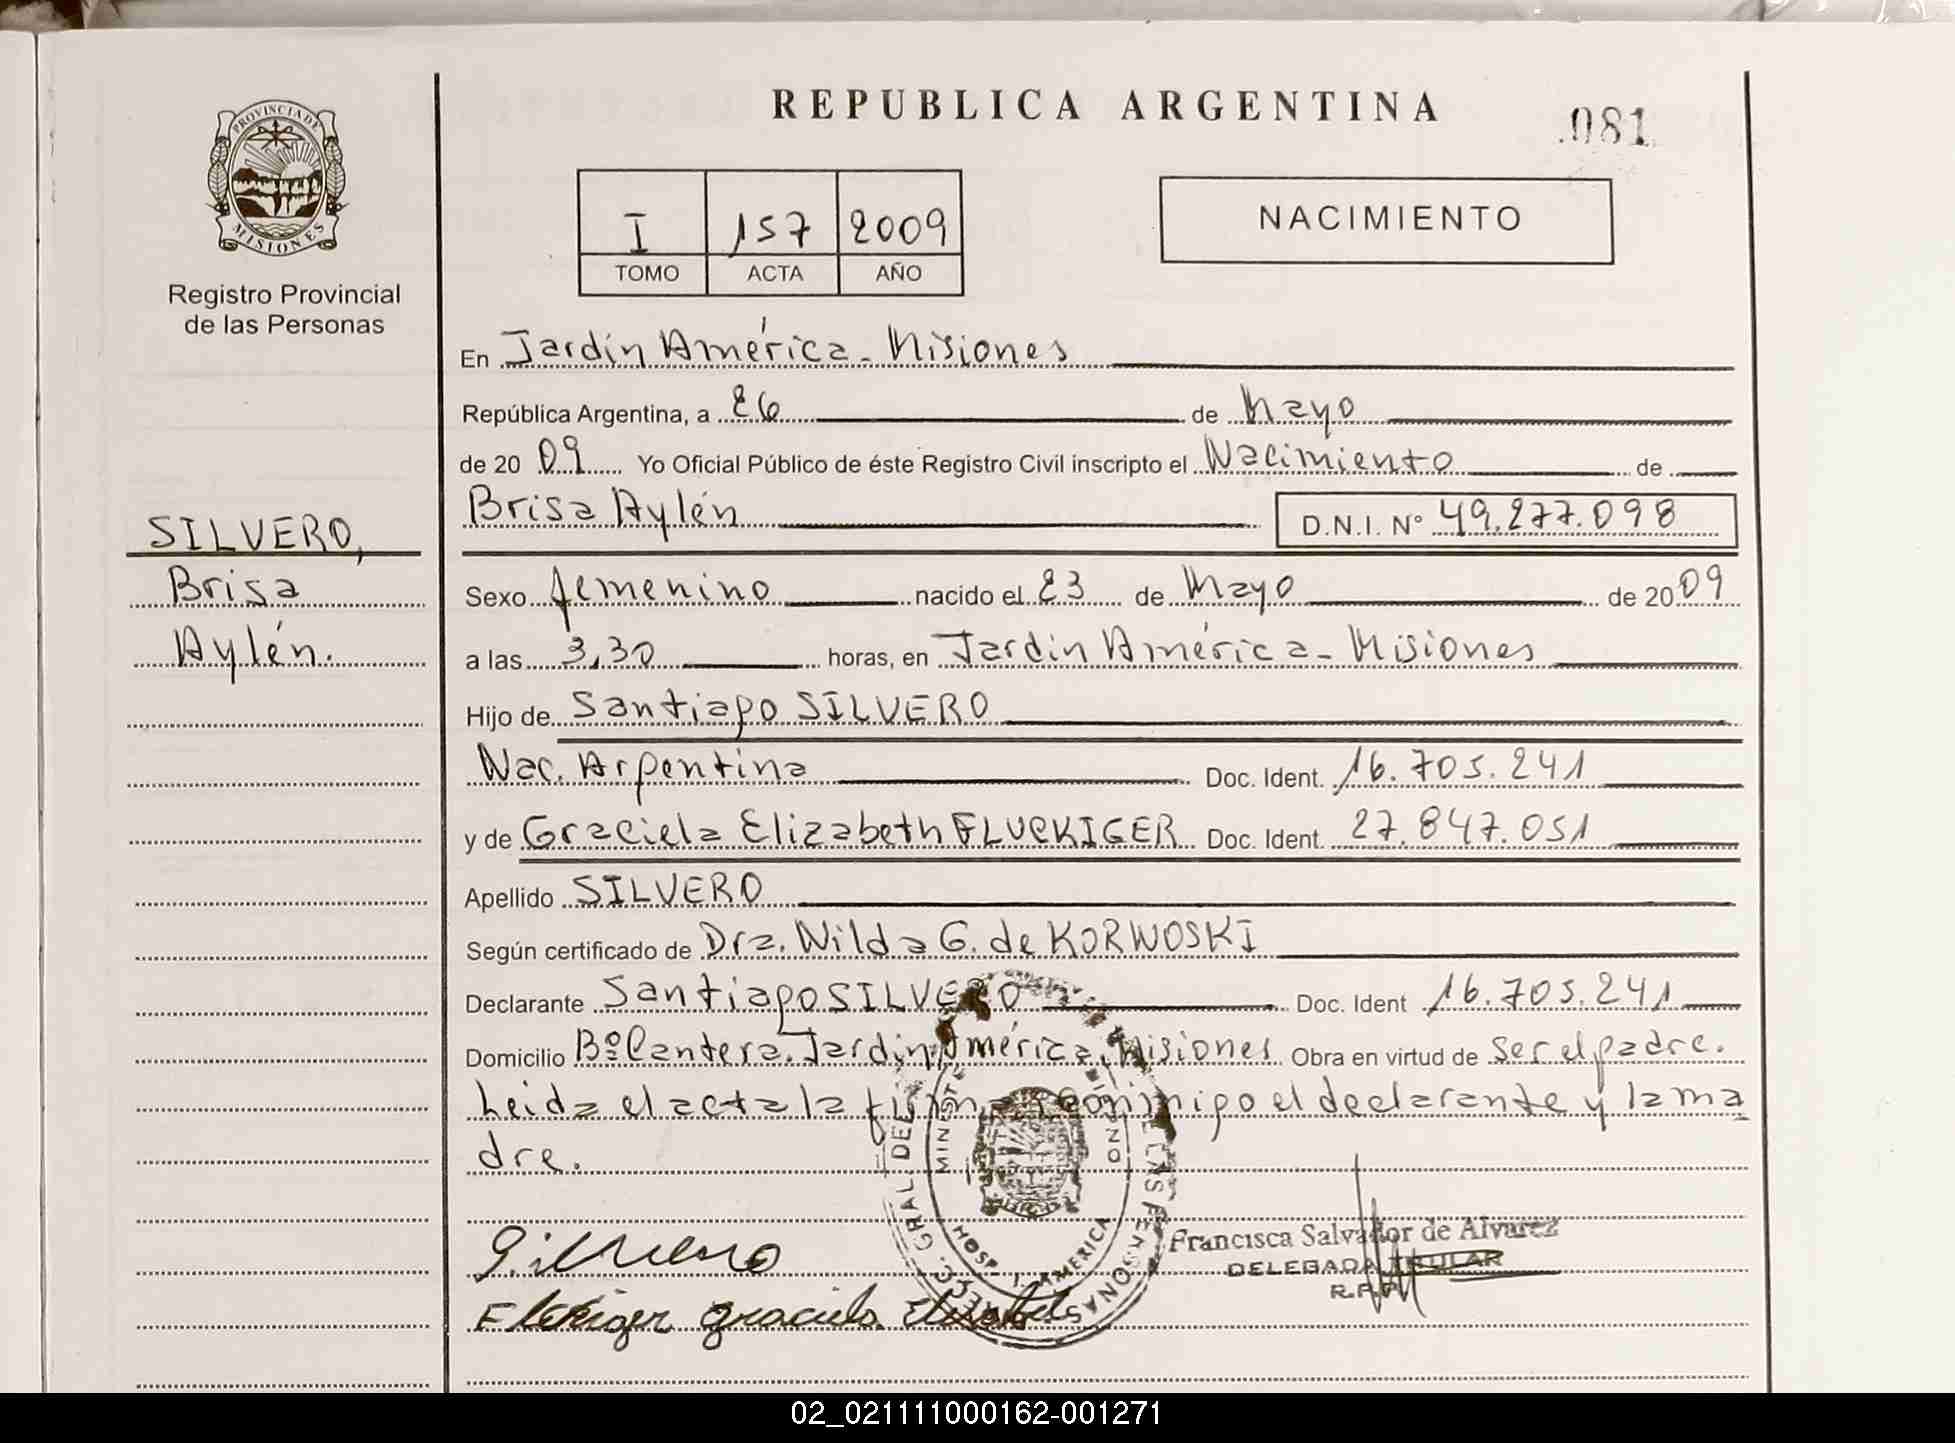 REPUBLICA ARGENTINA
.081
PROVINCIA DE
MISIONES
Registro Provincial
de las Personas
I 157 2009
TOMO ACTA AÑO
NACIMIENTO
En Jardín América - Misiones
República Argentina, a 26 de Mayo
de 20 09 Yo Oficial Público de éste Registro Civil inscripto el Nacimiento de
Brisa Aylén D.N.I. N° 49.277.098
SILVERO,
Brisa
Aylén.
Sexo femenino nacido el 23 de Mayo de 20 09
a las 3,30 horas, en Jardín América - Misiones
Hijo de Santiago SILVERO
Nac. Argentina Doc. Ident. 16.705.241
y de Graciela Elizabeth FLUCKIGER Doc. Ident. 27.847.051
Apellido SILVERO
Según certificado de Dra. Nilda G. de KORWOSKI
Declarante Santiago SILVERO Doc. Ident 16.705.241
Domicilio B° Cantera. Jardín América. Misiones Obra en virtud de ser el padre.
Leida el acta la conmigo el declarante y la ma
dre.
Silvero
Francisca Salvador de Alvarez
DELEGADA TITULAR
R.P.P.
Fluckiger Graciela Elizabeth
HOSP. J. AMERICA
02_021111000162-001271